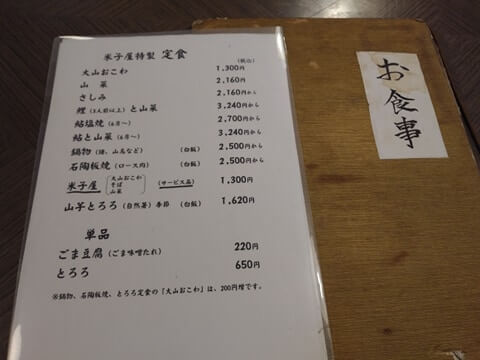 米子屋特製 定食
(税込)
大山おこわ 1,300円
山菜 2,160円
さしみ 2,160円から
鯉(2人前以上)と山菜 3,240円から
鮎塩焼(6月〜) 2,700円から
鮎と山菜(6月〜) 3,240円から
鍋物(猪、山鳥など) (白飯) 2,500円から
石陶板焼(ロース肉) (白飯) 2,500円から
米子屋 大山おこわ そば 山菜 (サービス品) 1,300円
山芋とろろ(自然薯)季節 (白飯) 1,620円
単品
ごま豆腐(ごま味噌たれ) 220円
とろろ 650円
※鍋物、石陶板焼、とろろ定食の「大山おこわ」は、200円増です。
お食事